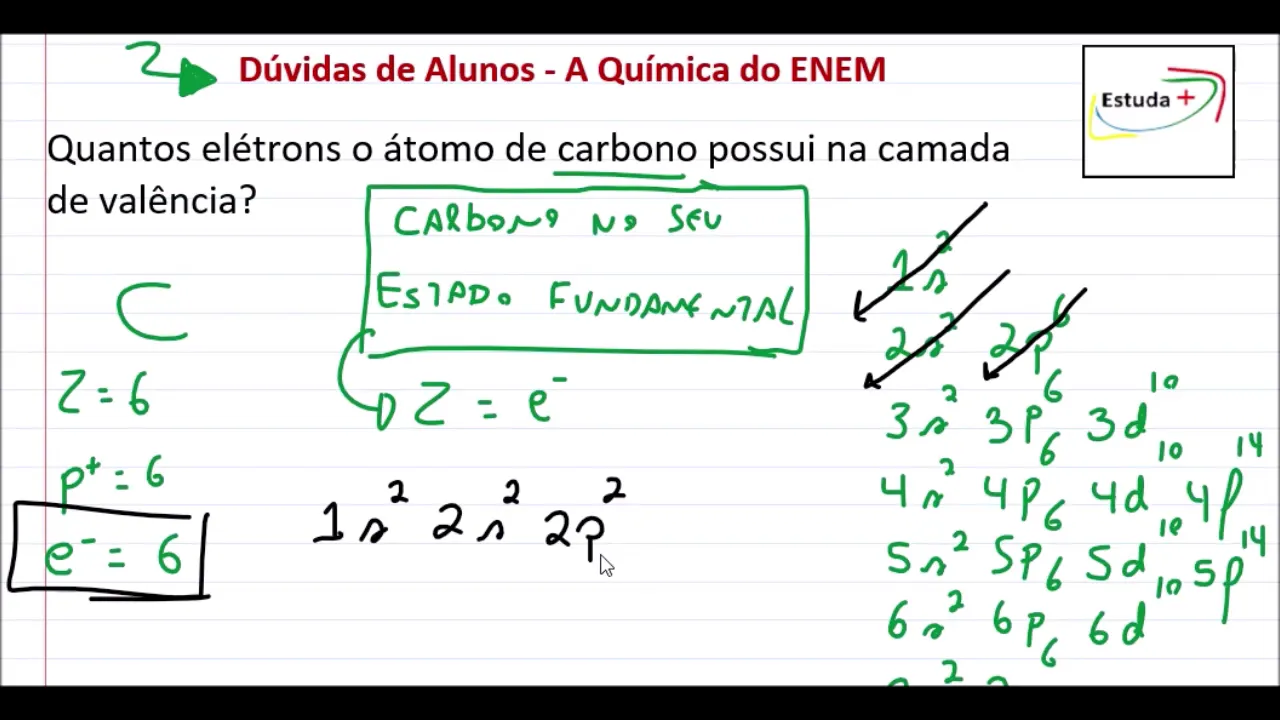 Dúvidas de Alunos - A Química do ENEM
Estuda +
Quantos elétrons o átomo de carbono possui na camada
de valência?
CARBONO NO SEU
ESTADO FUNDAMENTAL
C
Z = 6
Z = e⁻
p⁺ = 6
e⁻ = 6
1s² 2s² 2p²
1s²
2s² 2p⁶
3s² 3p⁶ 3d¹⁰
4s² 4p⁶ 4d¹⁰ 4f¹⁴
5s² 5p⁶ 5d¹⁰ 5f¹⁴
6s² 6p⁶ 6d¹⁰